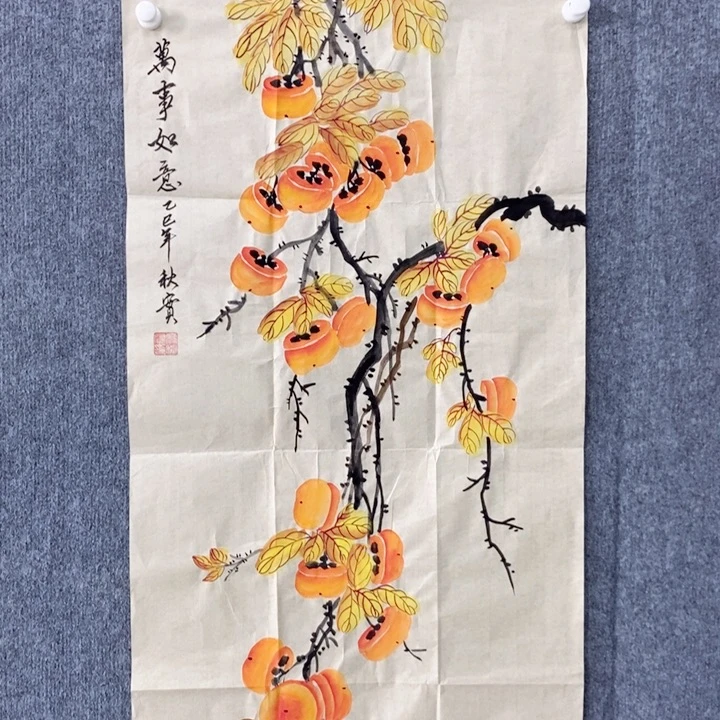 萬事如意乙巳年秋實